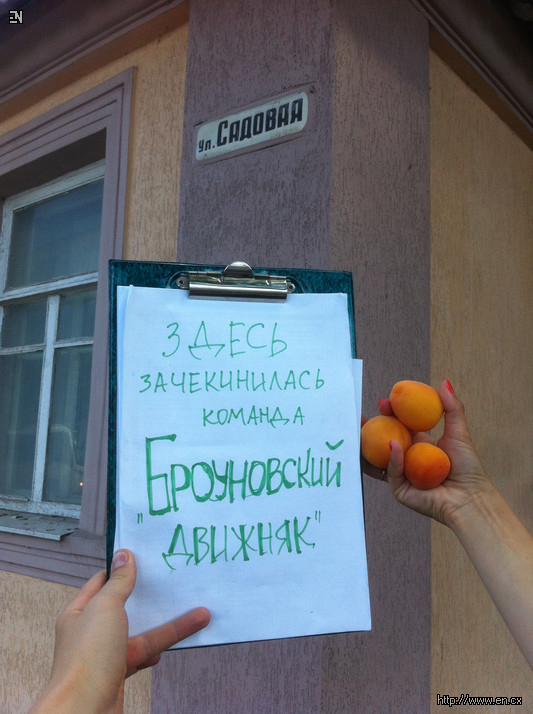 EN
ул. САДОВАЯ
ЗДЕСЬ
ЗАЧЕКИНИЛАСЬ
КОМАНДА
"БРОУНОВСКИЙ
ДВИЖНЯК"
http://www.en.cx